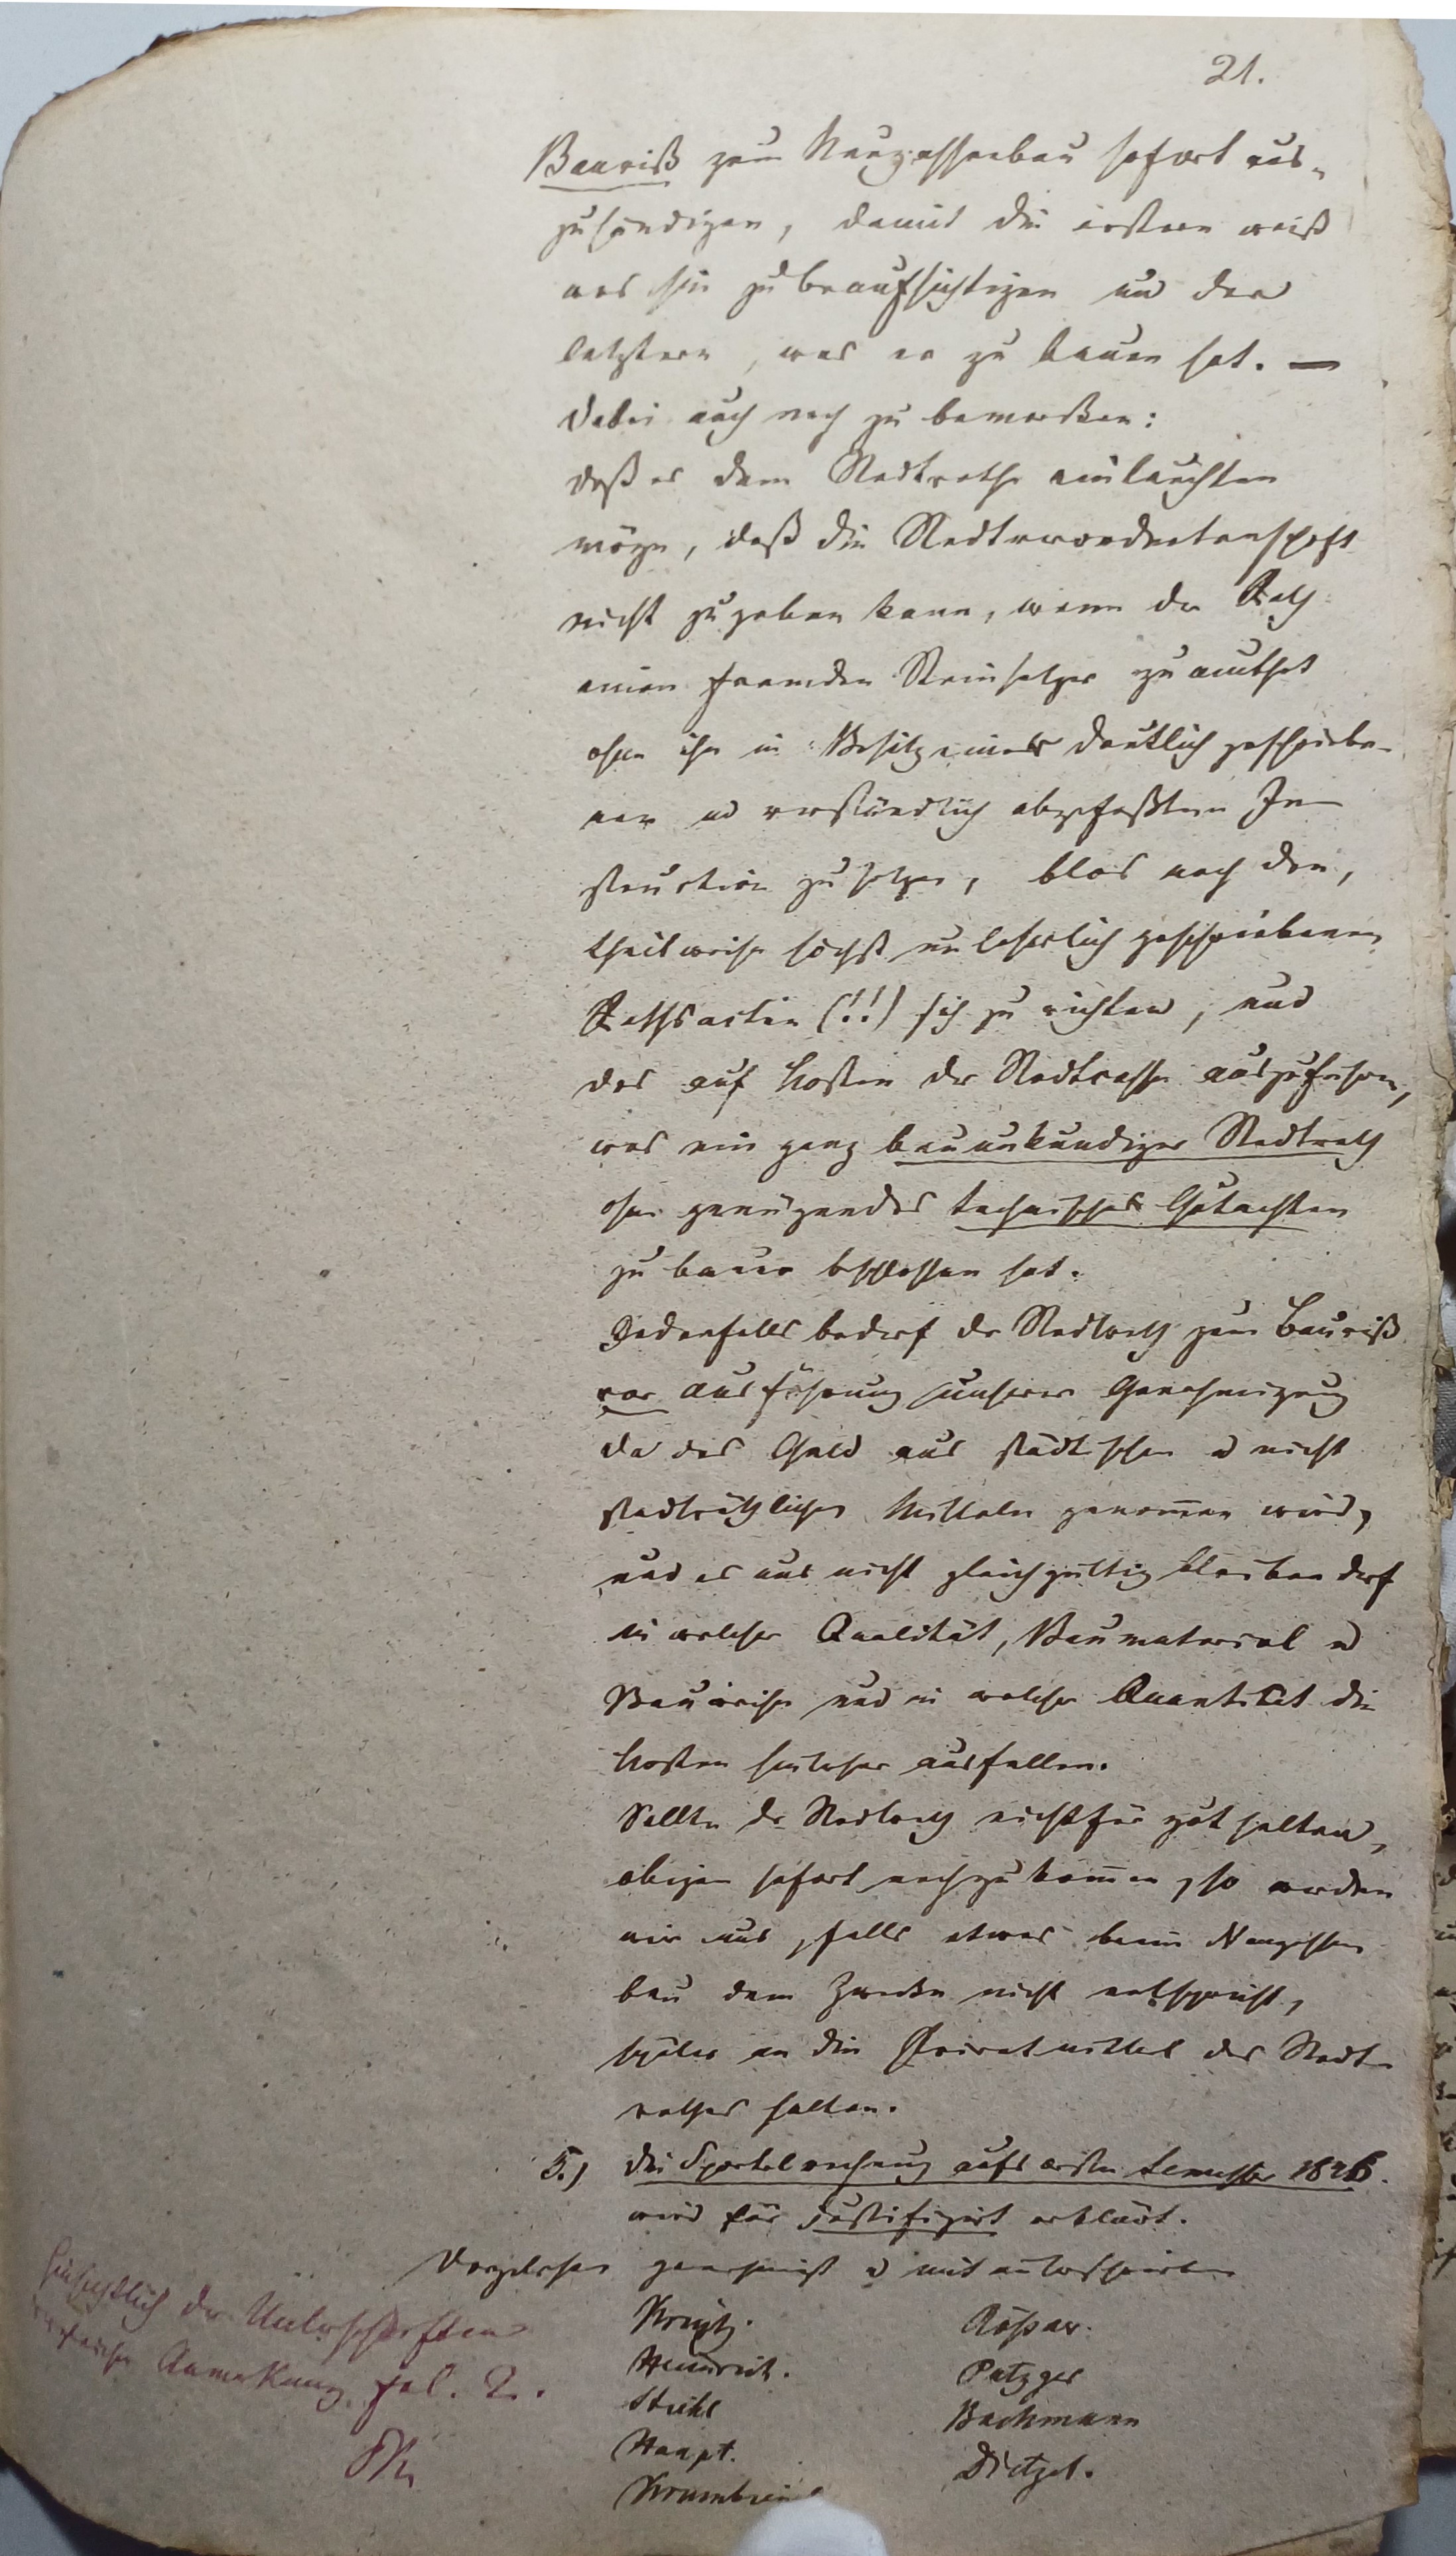 21.
Bauriß zum Neugassenbau sofort aus-
zuhändigen, damit die erstern weiß
was sie zu beaufsichtigen und der
letztere, was er zu bauen hat. —
Dabei auch noch zu bemerken:
daß es dem Stadtrathe einleuchten
möge, daß die Stadtverordnetenschaft
nicht zugeben kann, wenn der Rath
einen fremden Steinsetzer zumuthet
ohne ihn in Besitz einer deutlich geschriebe-
nen u verständlich abgefaßten In-
struction zu setzen, blos nach den,
theilweise höchst unleserlich geschriebenen
Rathsacten (!!) sich zu richten, und
das auf Kosten der Stadtcasse auszuführen,
was ein ganz bauunkundiger Stadtrath
ohne genügendes technisches Gutachten
zu bauen beschlossen hat.
Jedenfalls bedarf der Stadtrath zum Bauriß
vor Ausführung unserer Genehmigung
da das Geld aus städtischen u nicht
stadträthlichen Mitteln genommen wird,
und es uns nicht gleichgültig bleiben darf
in welcher Qualität, Baumaterial u
Bauweise und in welcher Quantität die
Kosten hierüber ausfallen.
Sollte der Stadtrath nicht für gut halten,
obigen sofort nachzukommen, so werden
wir uns, falls etwas beim Neugassen
bau dem Zwecke nicht entspricht,
später an die Privatmittel des Stadt-
rathes halten.
5.) Die Sportelrechnung aufs erste Semester 1846.
wird für justifizirt erklärt.
Vorgelesen genehmigt u mit unterschrieben
Hinsichtlich der Unterschriften
Anmerkung fol. 2.
Kreutz.
Heinrich.
Stiehl
Haupt.
Krumbein
Rößner.
Petzger
Bachmann
Dietzel.